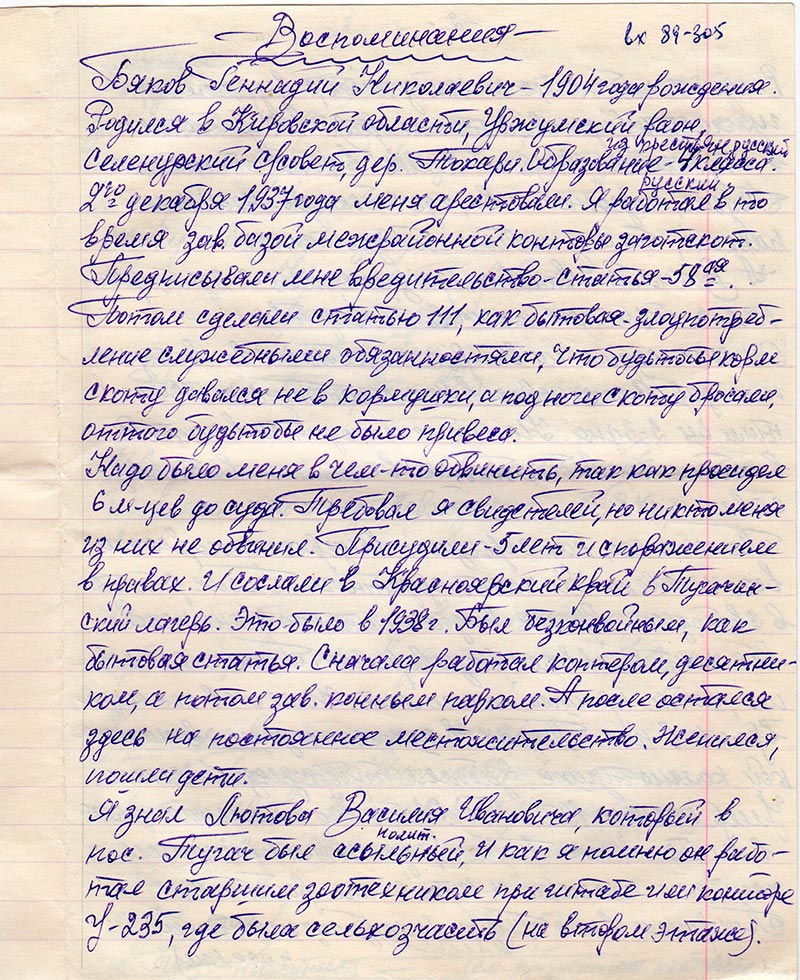 — Воспоминания — вх 89-305
Бяков Геннадий Николаевич - 1904 года рождения.
Родился в Кировской области, Уржумский раон,
из крестьян, русский
Селенурский с/совет, дер. Токари. Образование - 4 класса.
русский.
2го декабря 1937 года меня арестовали. Я работал в то
время зав. базой межрайонной конторы заготскот.
Предписывали мне вредительство - статья - 58ая.
Потом сделали статью 111, как бытовая - злоупотреб-
ление служебными обязанностями, что будьтобы корм
скоту давался не в кормушки, а под ноги скоту бросали,
оттого будьтобы не было привеса.
Надо было меня в чем-то обвинить, так как просидел
6 м-цев до суда. Требовал я свидетелей, но никто меня
из них не обвинил. Присудили - 5 лет и с поражением
в правах. И сослали в Красноярский край в Тугачин-
ский лагерь. Это было в 1938 г. Был безконвойным, как
бытовая статья. Сначала работал контером, десятни-
ком, а потом зав. конным парком. А после остался
здесь на постоянное местожительство. Женился,
пошли дети.
Я знал Лютова Василия Ивановича, который в
полит.
пос. Тугач был ссыльный, и как я помню он рабо-
тал старшим зоотехником при штабе или конторе
У-235, где была сельхозчасть (на втором этаже).